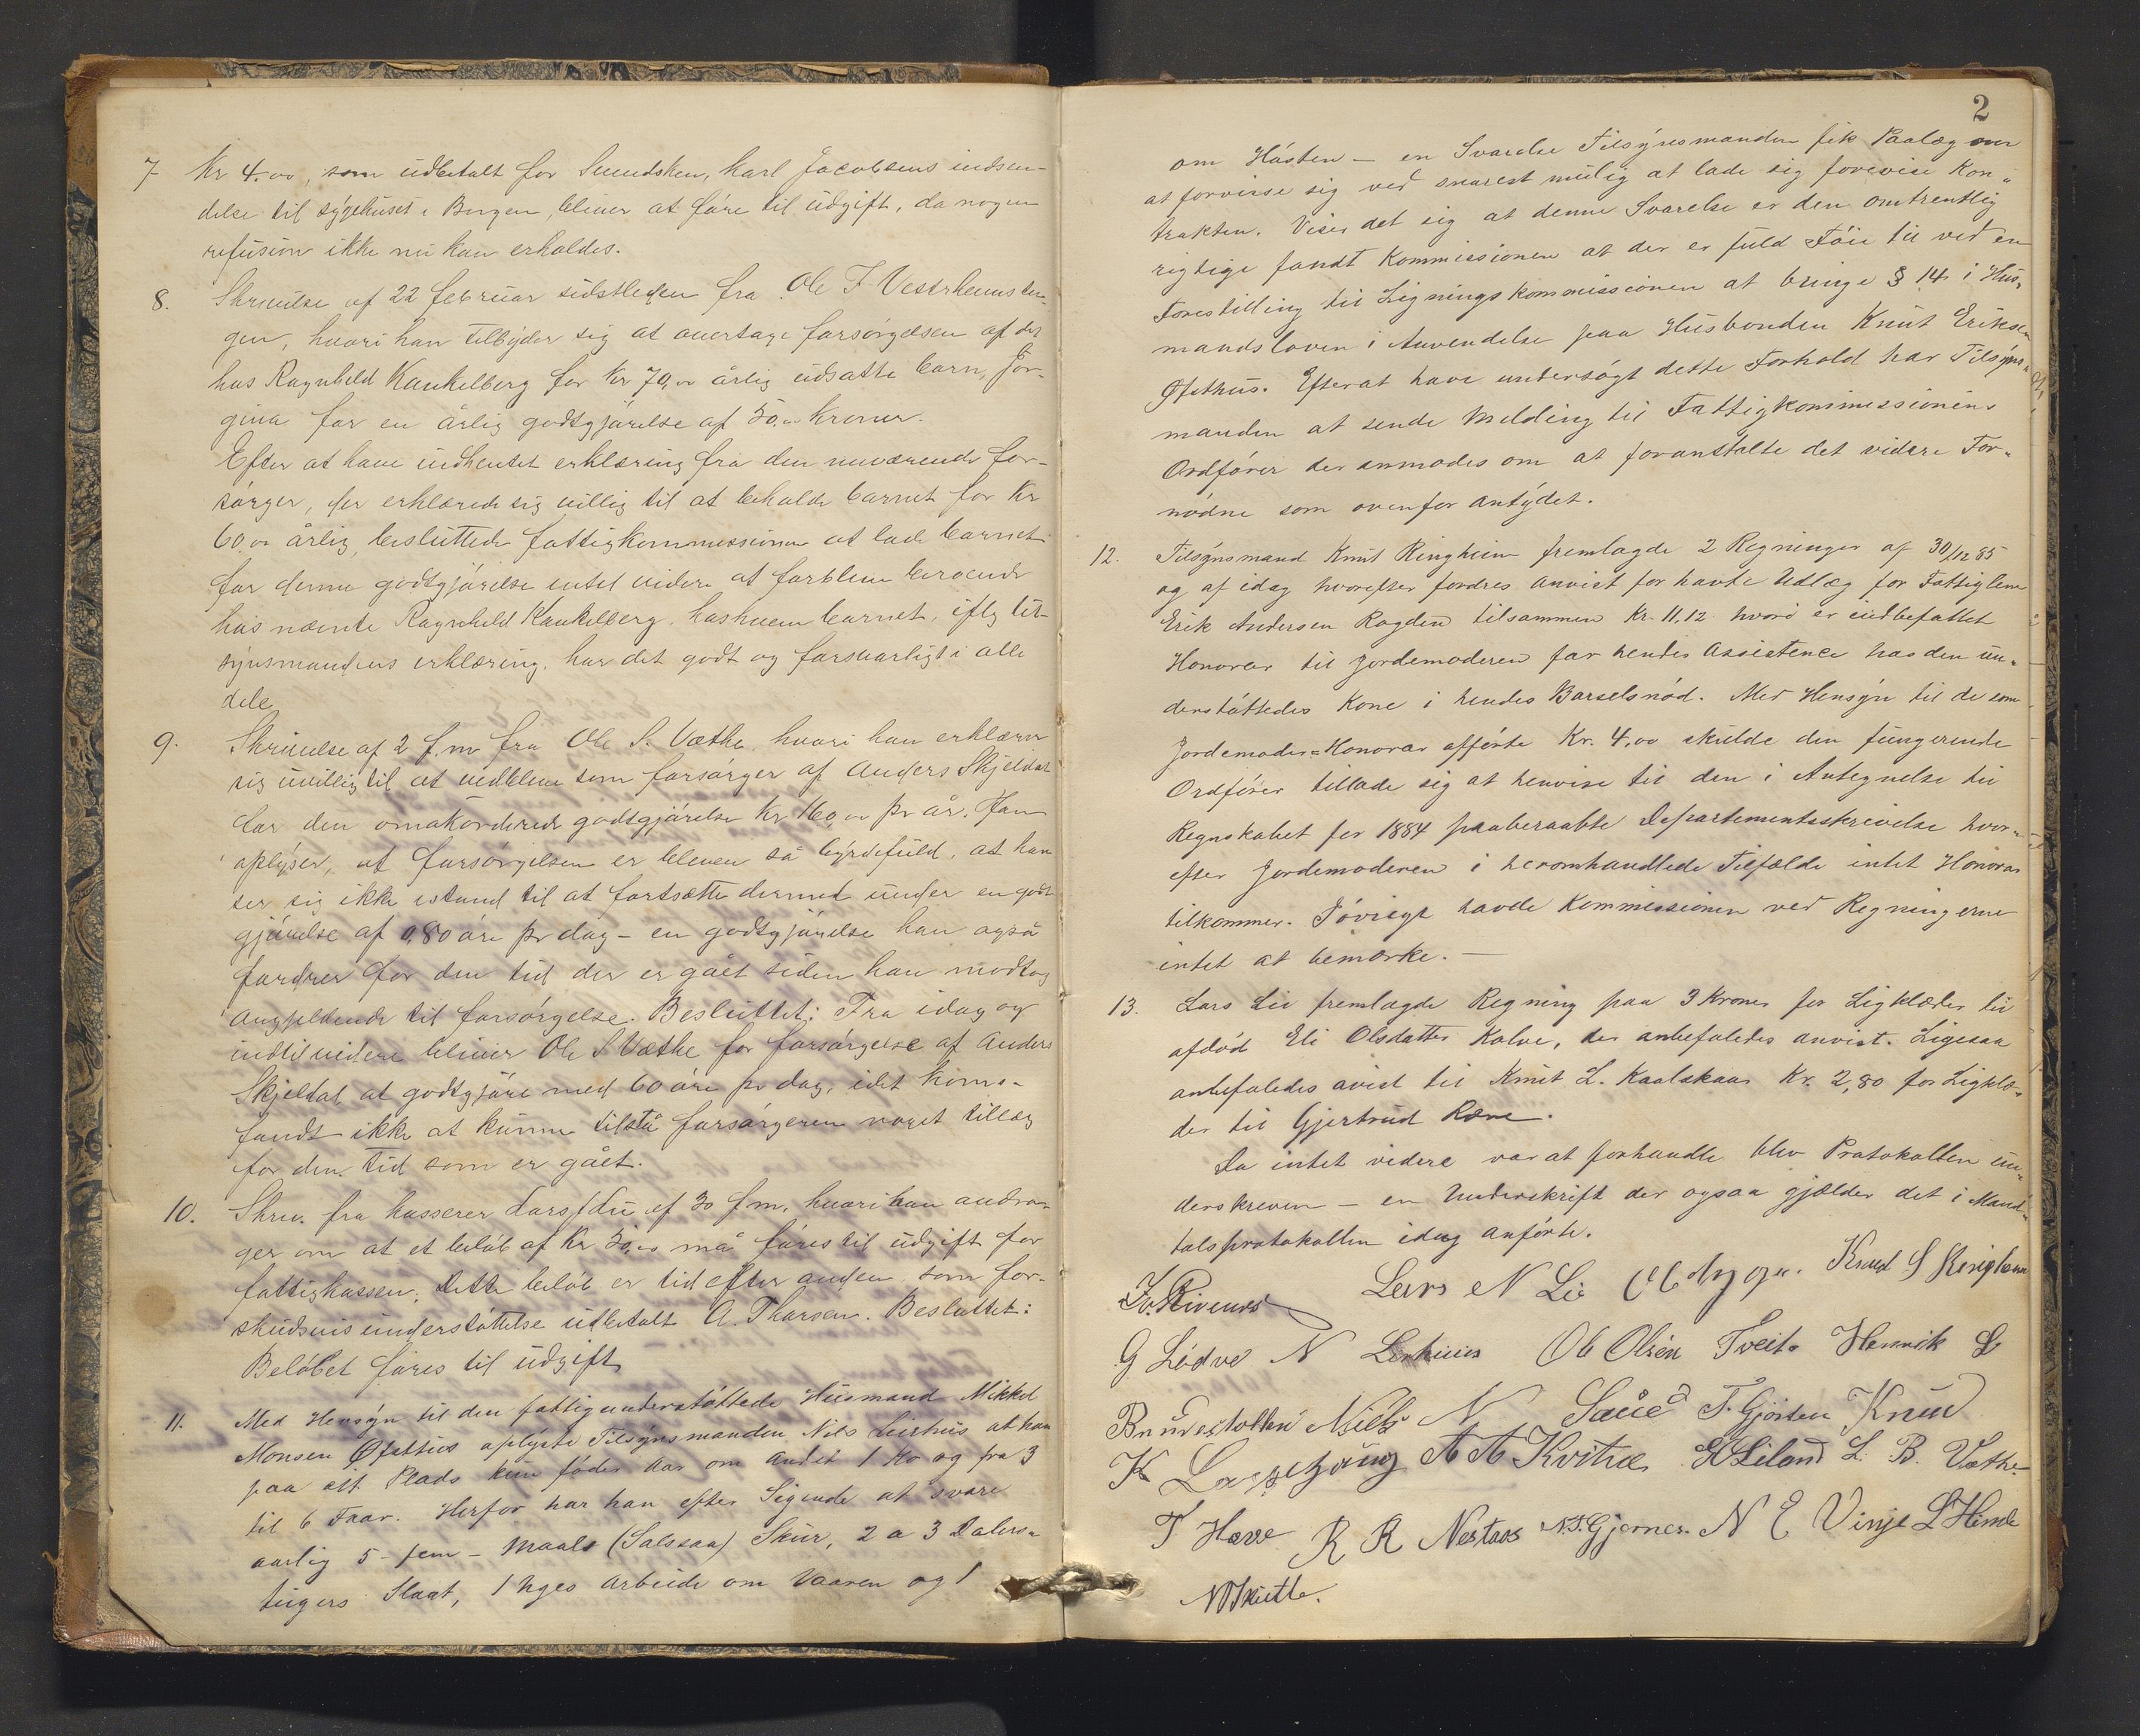 7 Kr 4.00, som udbetalt for Svendsken, Karl Jacobsens indsen-
delse til sygehuset i Bergen, bliver at føre til udgift, da nogen
refusion ikke nu kan erholdes.
8. Skrivelse af 22 februar sidstleden fra Ole T Vestrheims
gen, hvori han tilbyder sig at overtage forsørgelsen af det
hos Ragnhild Kankelberg for Kr 70,00 årlig udsatte barn, Jør-
gina for en årlig godtgjørelse af 50,00 kroner.
Efter at have indhentet erklæring fra den nuværende for-
sørger, der erklærede sig villig til at beholde barnet for Kr
60,00 årlig, besluttede fattigkommissionen at lade barnet
for denne godtgjørelse intil videre at forblive beroende
hos nævnte Ragnhild Kankelberg, hos hvem barnet, iflg til-
synsmandens erklæring, har det godt og forsvarligt i alle
dele
9. Skrivelse af 2 f.m. fra Ole S. Væthe, hvori han erklærer
sig uvillig til at vedblive som forsørger af Anders Skjeldal
for den omakorderede godtgjørelse Kr 160,00 pr år. Han
oplyser, at forsørgelsen er bleven så byrdefuld, at han
ser sig ikke istand til at fortsætte dermed under en godt-
gjørelse af 0,80 øre pr dag - en godtgjørelse han også
fordrer for den tid der er gået siden han modtog
angjeldende til forsørgelse. Besluttet: Fra idag og
indtil videre bliver Ole S Væthe for forsørgelse af Anders
Skjeldal at godtgjøre med 60 øre pr dag, idet koms.
fandt ikke at kunne tilstå forsørgeren noget tillæg
for den tid som er gået.
10. Skriv. fra kasserer Lars Lid af 30 f.m., hvori han andra-
ger om at et beløb af Kr 30,00 må føres til udgift for
fattigkassen. Dette beløb er tid efter anden som for-
skudsvis understøttelse udbetalt A. Thorsen. Besluttet:
Beløbet føres til udgift
11. Med Hensyn til den fattigunderstøttede Husmand Mikkel
Monsen Øfsthus oplyste Tilsynsmanden Nils Leirhus at han
paa sit Plads kun føder Aar om andet 1 Ko og fra 3
til 6 Faar. Herfor har han efter Sigende at svare
aarlig 5 - fem - Maals (Salssaa) Skur, 2 a 3 Dalers-
tugers Slaat, 1 Uges Arbeide om Vaaren og 1
2
om Høsten - en Svarelse Tilsynsmanden fik Paalæg om
at forvisse sig ved snarest mulig at lade sig forevise Kon-
trakten. Viser det sig at denne Svarelse er den omtrentlig
rigtige fandt Kommissionen at der er fuld Føie til ved en
Forestilling til Ligningskommissionen at bringe § 14 i Hus-
mandsloven i Anvendelse paa Husbonden Knut Eriksen
Øfsthus. Efterat have undersøgt dette Forhold har Tilsyns-
manden at sende Melding til Fattigkommissionens
Ordfører der anmodes om at foranstalte det videre For-
nødne som ovenfor antydet.
12. Tilsynsmand Knut Ringheim fremlagde 2 Regninger af 30/12 85
og af idag hvorefter fordres anvist for havte Udlæg for Fattiglem
Erik Andersen Rogden tilsammen Kr. 11,12 hvori er indbefattet
Honorar til Jordemoderen for hendes Assistence hos den un-
derstøttedes Kone i hendes Barselsnød. Med Hensyn til de som
Jordemoder-Honorar opførte Kr. 4,00 skulde den fungerende
Ordfører tillade sig at henvise til den i Antegnelse til
Regnskabet for 1884 paaberaabte Departementsskrivelse hvor-
efter Jordemoderen i heromhandlede Tilfælde intet Honorar
tilkommer. Iøvrigt havde Kommissionen ved Regningerne
intet at bemærke. —
13. Lars Lid fremlagde Regning paa 3 Kroner for Ligklæder til
afdød Eli Olsdatter Kolve, der anbefaledes anvist. Ligesaa
anbefaledes avist til Knut L. Kaalskaar Kr. 2,80 for Ligklæ-
der til Gjertrud Rene.
Da intet videre var at forhandle blev Protokollen un-
derskreven - en Underskrift der ogsaa gjælder det i Mand-
talsprotokollen idag anførte.
Lars N Lid Knud S Ringheim
G Lødve N Leirhuus Ole Olsen Tveito Henrik L
Brudestollen Niels N Saue T. Gjøsten Knud
K A A Kvitne H Liland L. B. Væthe
T Horve R R Nestaas N. T. Gjerner N E Vinje L Himle
N Skutle.